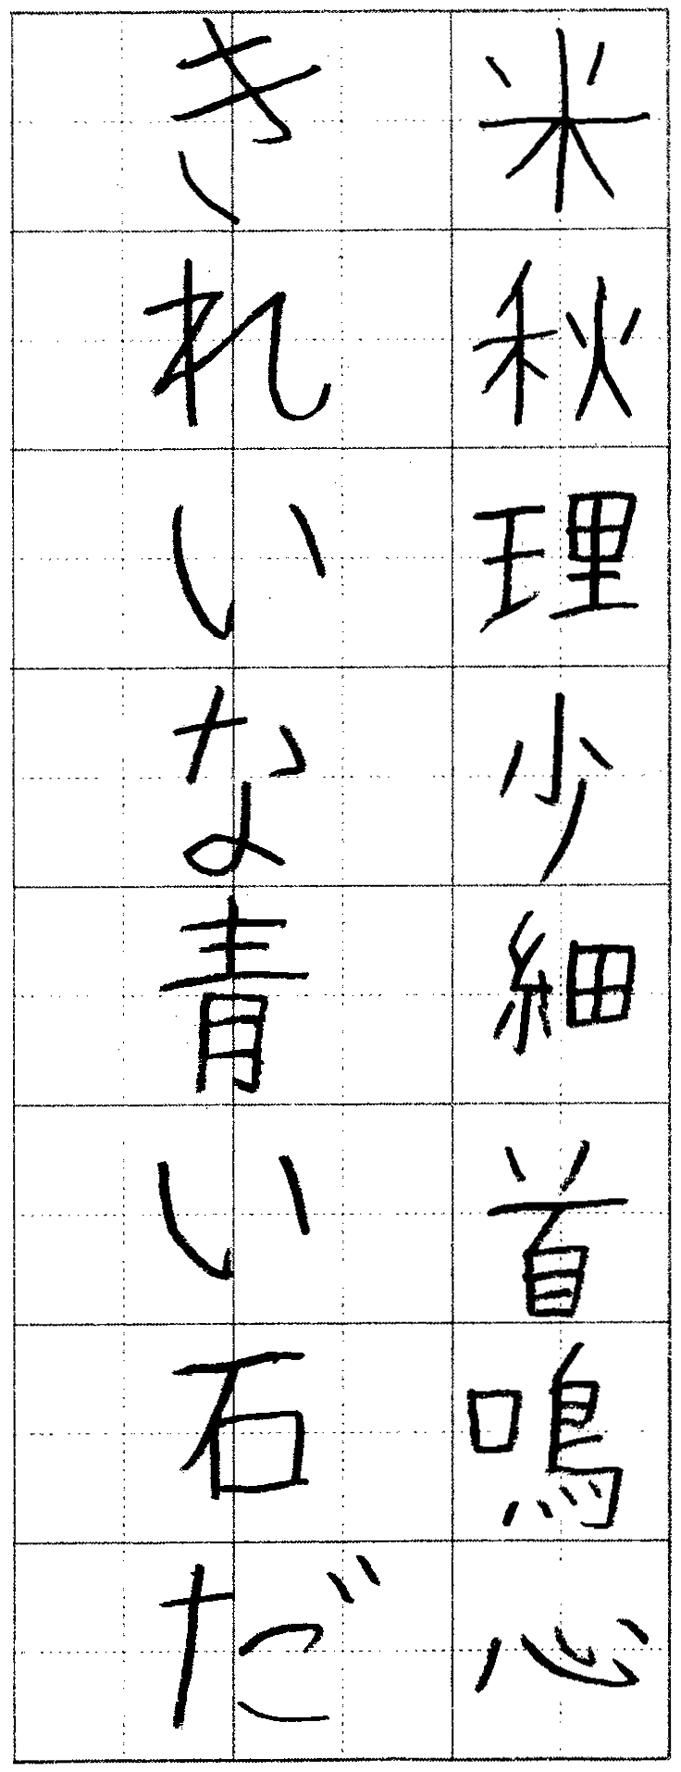 米秋理少細首鳴心
きれいな青い石だ